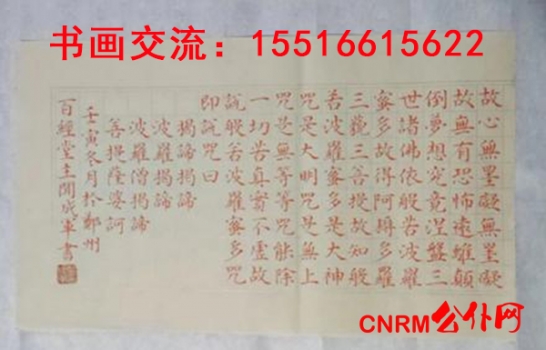 书画交流：15516615622
故心無罣礙無罣礙
故無有恐怖遠離顛
倒夢想究竟涅盤三
世諸佛依般若波羅
蜜多故得阿耨多羅
三藐三菩提故知般
若波羅蜜多是大神
咒是大明咒是無上
咒是無等等咒能除
一切苦真實不虛故
說般若波羅蜜多咒
即說咒曰
揭諦揭諦
波羅揭諦
波羅僧揭諦
菩提薩婆訶
壬寅冬月於鄭州
百經堂主閆成軍書
CNRM公仆网